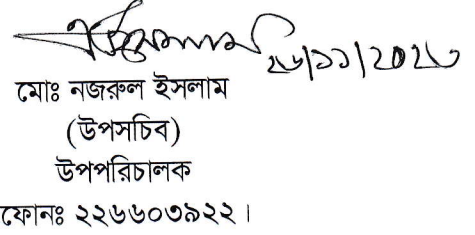 ২৬/১১/২০২৩
মোঃ নজরুল ইসলাম
(উপসচিব)
উপপরিচালক
ফোনঃ ২২৬৬০৩৯২২।